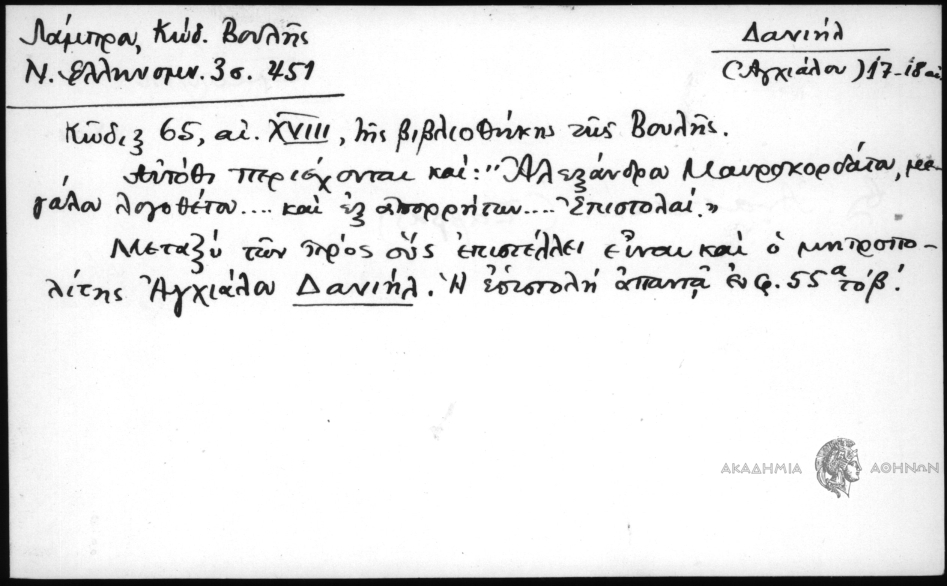 Λάμπρου, Κώδ. Βουλῆς
Ν. Ἑλληνομν. 3 σ. 451
Δανιήλ
(Ἀγχιάλου) 17-18 αἰ.
Κῶδιξ 65, αἰ. XVIII, τῆς βιβλιοθήκης τῆς Βουλῆς.
Αὐτόθι περιέχονται καί: "Ἀλεξάνδρου Μαυροκορδάτου, με-
γάλου λογοθέτου.... καὶ ἐξ ἀπορρήτων.... Ἐπιστολαί."
Μεταξὺ τῶν πρὸς οὓς ἐπιστέλλει εἶναι καὶ ὁ μητροπο-
λίτης Ἀγχιάλου Δανιήλ. Ἡ ἐπιστολὴ ἀπαντᾷ ἐν φ. 55α
ΑΚΑΔΗΜΙΑ ΑΘΗΝΩΝ